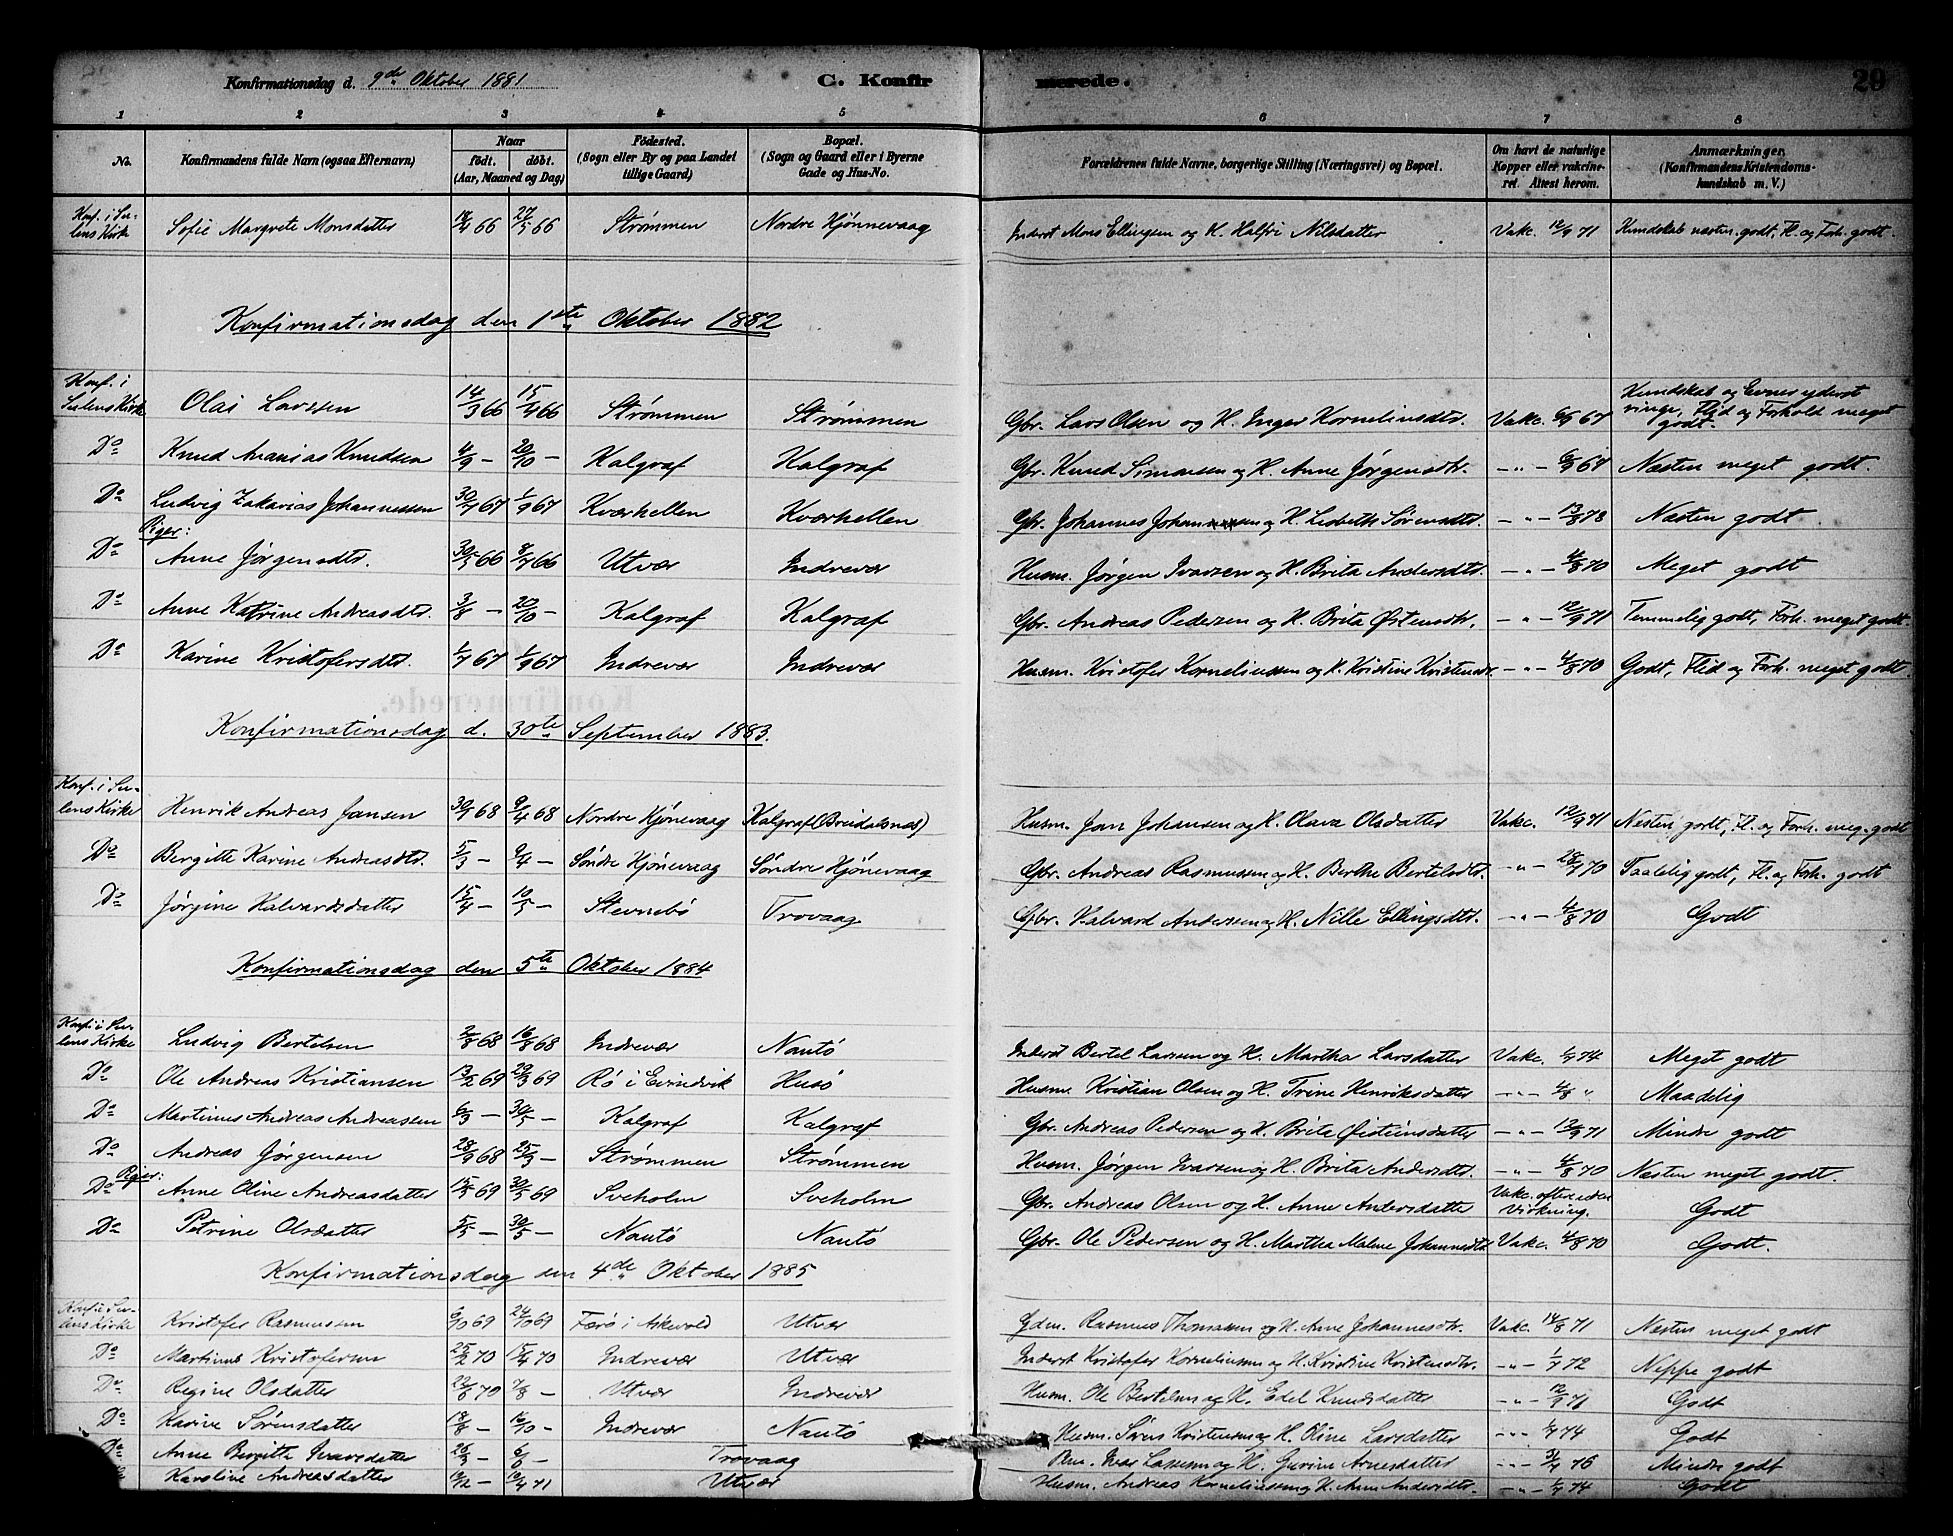 Konfirmationsdag d. 9de Oktober 1881
C. Konfirmerede.
29
1 2 3 4 5 6 7 8
No. Konfirmandens fulde Navn (ogsaa Efternavn) Naar födt. döbt. (Aar, Maaned og Dag) Födested. (Sogn eller By og paa Landet tillige Gaard) Bopæl. (Sogn og Gaard eller i Byerne Gade og Hus-No. Forældrenes fulde Navne, borgerlige Stilling (Næringsvei) og Bopæl. Om havt de naturlige Kopper eller vakcineret. Attest herom. Anmærkninger (Konfirmandens Kristendomskundskab m. V.)
Konf. i Sulens Kirke Sofie Margrete Monsdatter 18/4 66 27/5 66 Strømmen Nordre Hjønnevaag Inderst Mons Ellingsen og H. Halfri Nilsdatter Vakc. 12/9 71 Kundskab næsten godt, Fl. og Forh. godt.
Konfirmationsdag den 1ste Oktober 1882
Konf. i Sulens Kirke Olai Larssen 14/3 66 15/4 66 Strømmen Strømmen Gbr. Lars Olsen og H. Inger Kornelinsdtr. Vakc. 6/9 67 Kundskab og Evner yderst ringe, Flid og Forhold meget godt.
Do Knud Ananias Knudsen 4/9 — 20/10 — Kalgraf Kalgraf Gbr. Knud Simonsen og H. Anne Jørgensdtr. —„— 6/9 67 Næsten meget godt.
Do Ludvig Zakarias Johannessen 30/7 67 1/9 67 Kværhellen Kværhellen Gbr. Johannes Johannessen og H. Lisbeth Sørensdtr. —„— 13/8 78 Næsten godt.
Piger:
Do Anne Jørgensdtr. 30/5 66 8/7 66 Utvær Indrevær Husm. Jørgen Ivarsen og H. Brita Andersdtr. —„— 4/8 70 Meget godt
Do Anne Katrine Andreasdtr. 3/8 — 20/10 — Kalgraf Kalgraf Gbr. Andreas Pedersen og H. Brita Østensdtr. —„— 12/9 71 Temmelig godt, Forh. meget godt.
Do Karine Kristofersdtr. 1/7 67 1/9 67 Indrevær Indrevær Husm. Kristofer Korneliussen og H. Kristine Kristensdtr. —„— 4/8 70 Godt, Flid og Forh. meget godt.
Konfirmationsdag d. 30te September 1883.
Konf. i Sulens Kirke Henrik Andreas Jansen 30/1 68 9/4 68 Nordre Hjønevaag Kalgraf (Breidalsnæs) Husm. Jan Johansen og H. Olava Olsdatter Vakc. 12/9 71 Næsten godt, Fl. og Forh. meg. godt
Do Bergitte Karine Andreasdtr. 5/3 — 9/4 — Søndre Hjønevaag Søndre Hjønevaag Gbr. Andreas Rasmussen og H. Berthe Bertelsdtr. —„— 28/7 70 Taalelig godt, Fl. og Forh. godt
Do Jørgine Halvardsdatter 15/4 — 10/5 — Stevnebø Trovaag Gbr. Halvard Anderssen og H. Nille Ellingsdtr. —„— 4/8 70 Godt
Konfirmationsdag den 5te Oktober 1884
Konf. i Sulens Kirke Ludvig Bertelsen 2/8 68 16/8 68 Indrevær Nautø Inderst Bertel Larssen og H. Martha Larsdatter Vakc. 1/9 74 Meget godt
Do Ole Andreas Kristiansen 13/2 69 29/3 69 Rø i Evindvik Husø Husm. Kristian Olsen og H. Trine Henriksdatter —„— 4/8 „ Maadelig
Do Martinus Andreas Andreassen 6/3 — 30/5 — Kalgraf Kalgraf Gbr. Andreas Pedersen og H. Brita Østeinsdatter —„— 13/9 71 Mindre godt
Do Andreas Jørgensen 28/9 68 25/3 — Strømmen Strømmen Husm. Jørgen Ivarsen og H. Brita Andersdtr. —„— 4/8 70 Næsten meget godt.
Piger:
Do Anne Oline Andreasdatter 15/5 69 30/5 69 Sveholm Sveholm Gbr. Andreas Olsen og H. Anne Andersdatter Vakc. often uden Virkning. Godt
Do Petrine Olsdatter 5/5 — 30/5 — Nautø Nautø Gbr. Ole Pedersen og H. Martha Malene Johannesdtr. Vakc. 4/8 70 Godt.
Konfirmationsdag den 4de Oktober 1885
Konf. i Sulens Kirke Kristofer Rasmussen 6/10 69 24/10 69 Færø i Askevold Utvær Gdm. Rasmus Thomassen og H. Anne Johannesdtr. Vakc. 14/8 71 Næsten meget godt
Do Martinus Kristofersen 25/2 70 15/4 70 Indrevær Utvær Inderst Kristofer Korneliussen og H. Kristine Kristensdtr. —„— 1/7 72 Neppe godt
Do Regine Olsdatter 22/6 70 7/8 — Utvær Indrevær Husm. Ole Bertelsen og H. Edel Knudsdatter —„— 12/9 71 Godt
Do Karine Sørensdatter 18/8 — 16/10 — Indrevær Nautø Husm. Søren Kristensen og H. Oline Larsdatter —„— 1/9 74 Godt
Do Anne Bergitte Ivarsdatter 26/3 — 6/6 — Trovaag Ivar Larssen og H. Gurine Arnesdatter —„— 76 Mindre godt
Karoline Andreasdatter 10/12 — 10/4 71 Utvær Husm. Andreas Korneliussen og H. Anne Andersdtr. —„— 1/9 74 Godt